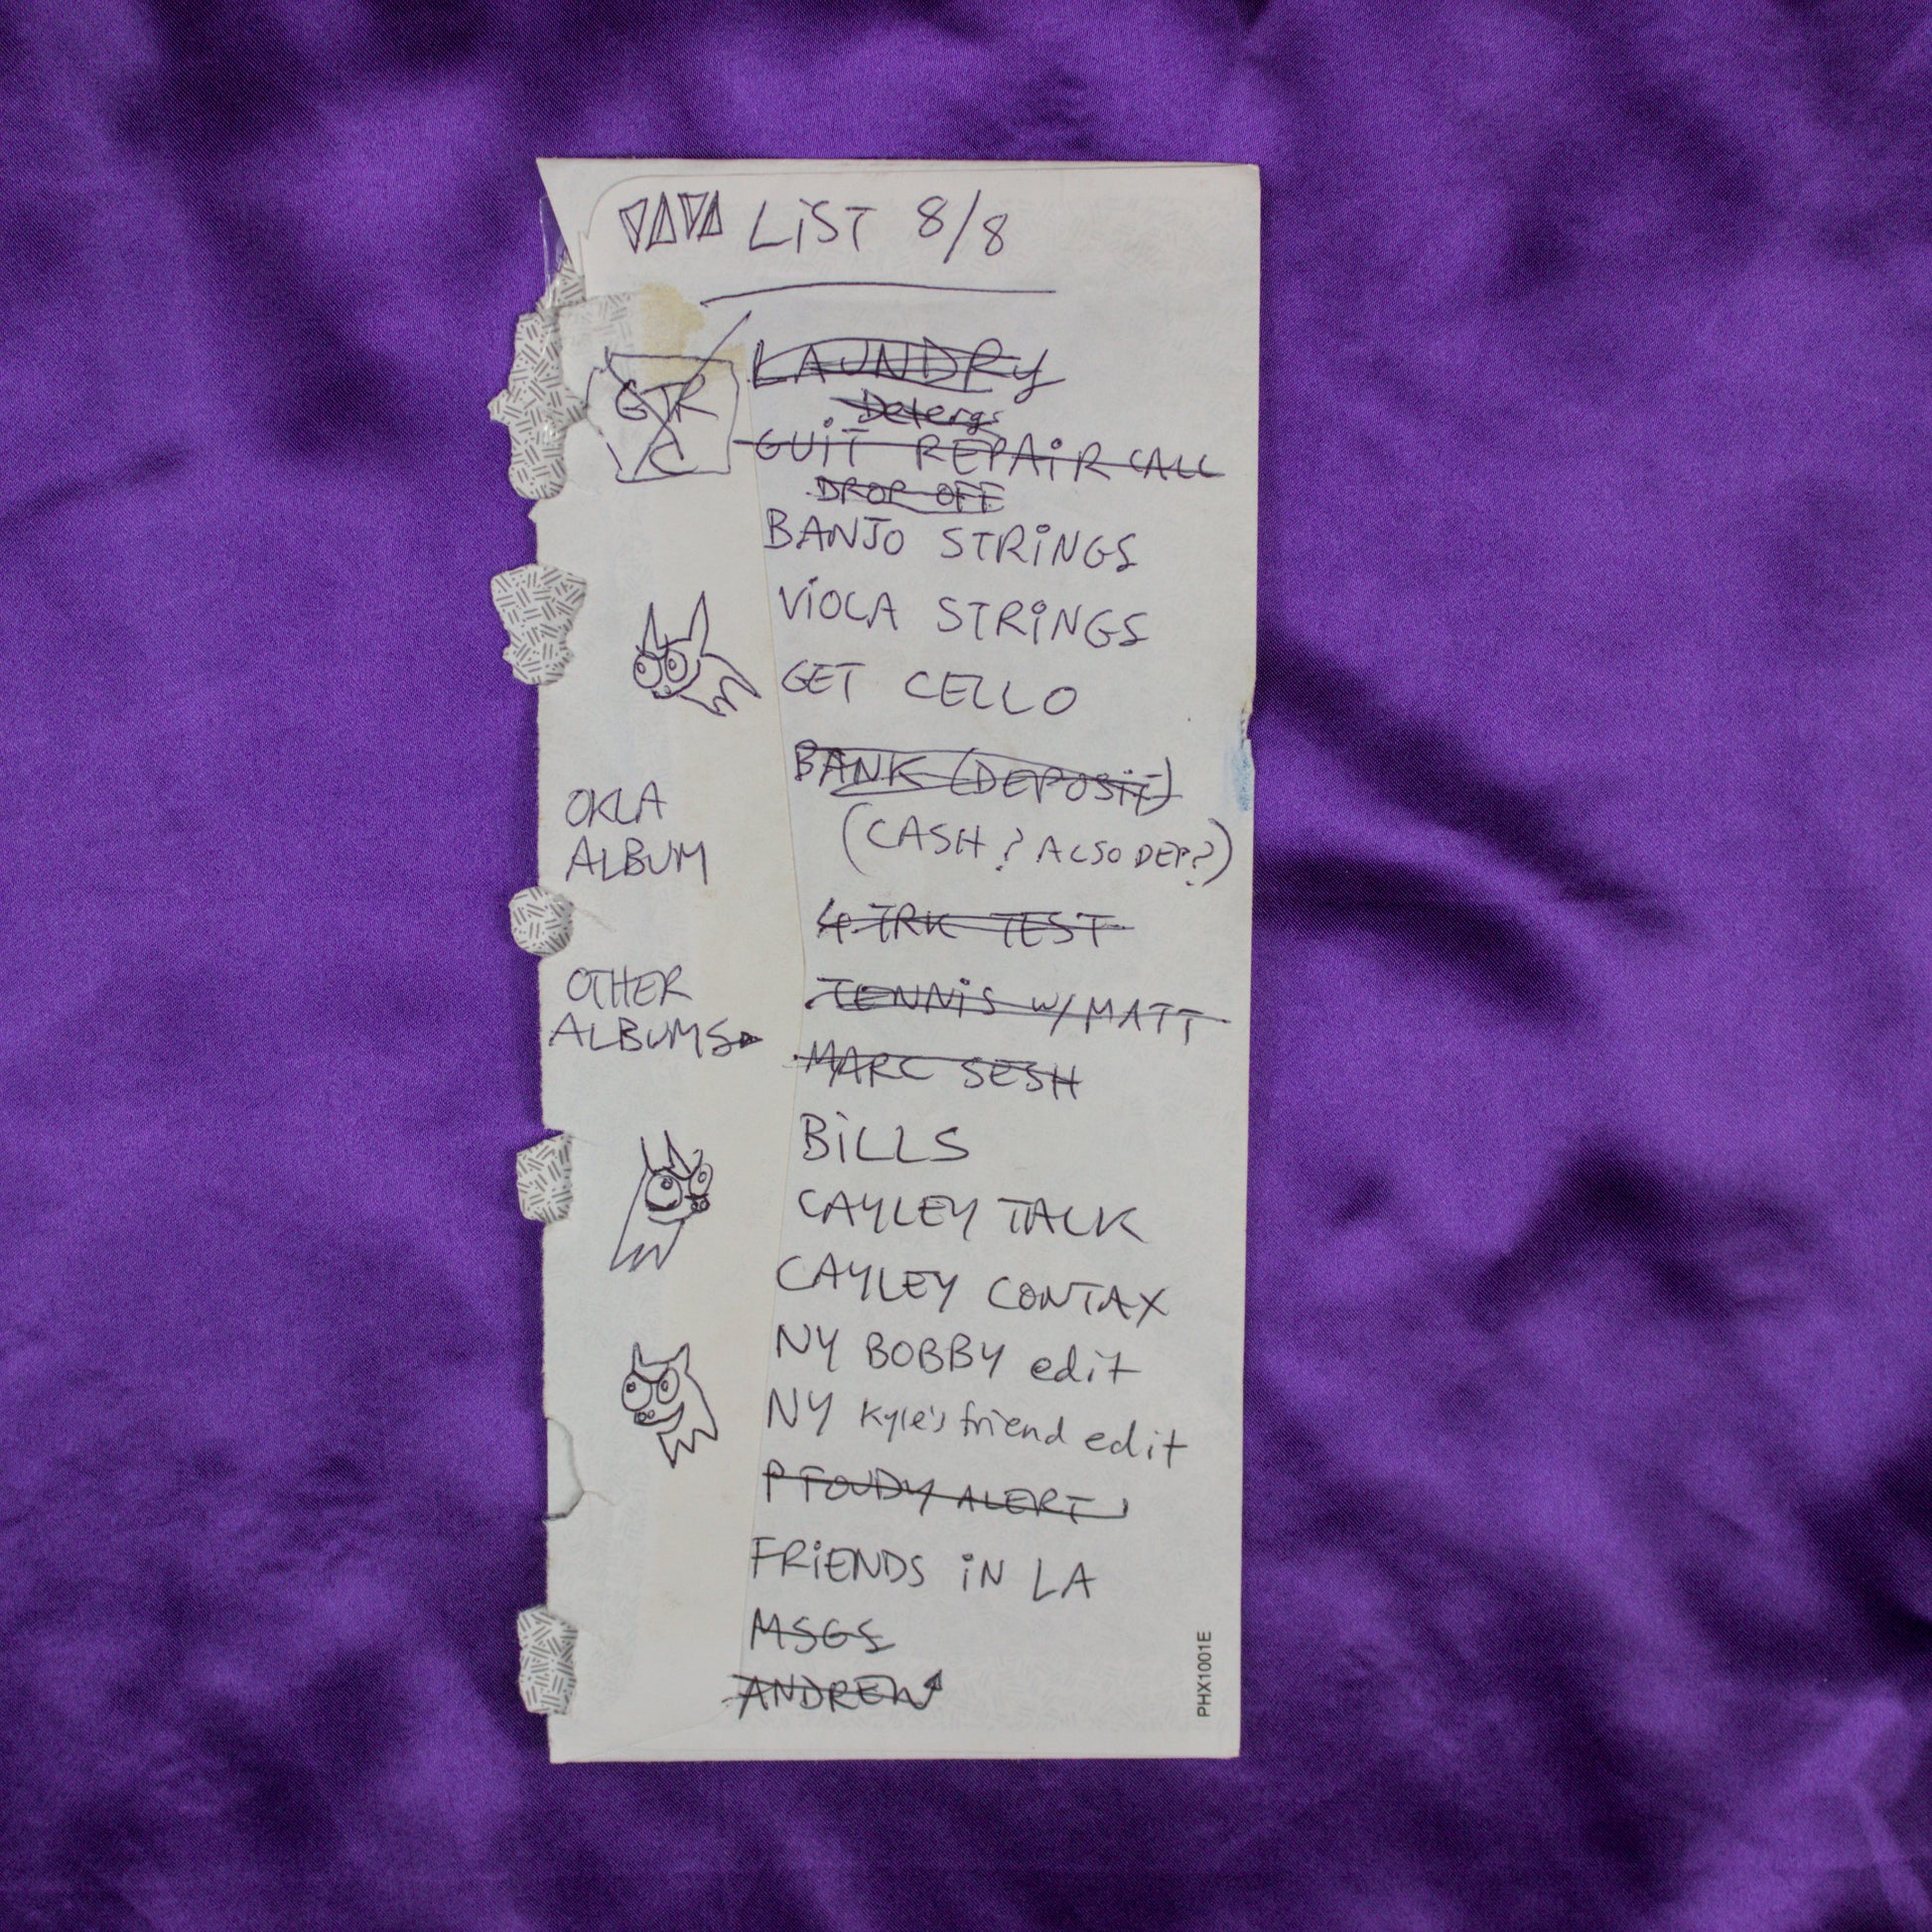 LIST 8/8
LAUNDRY
Deterg
GTR
C
GUIT REPAIR CALL
DROP OFF
BANJO STRINGS
VIOLA STRINGS
GET CELLO
BANK (DEPOSIT)
(CASH? ALSO DEP?)
OKLA
ALBUM
4 TRK TEST
OTHER
ALBUMS
TENNIS W/ MATT
MARC SESH
BILLS
CAYLEY TALK
CAYLEY CONTAX
NY BOBBY edit
NY Kyle's friend edit
ALERT
FRIENDS IN LA
MSGS
ANDREW
PHX1001E